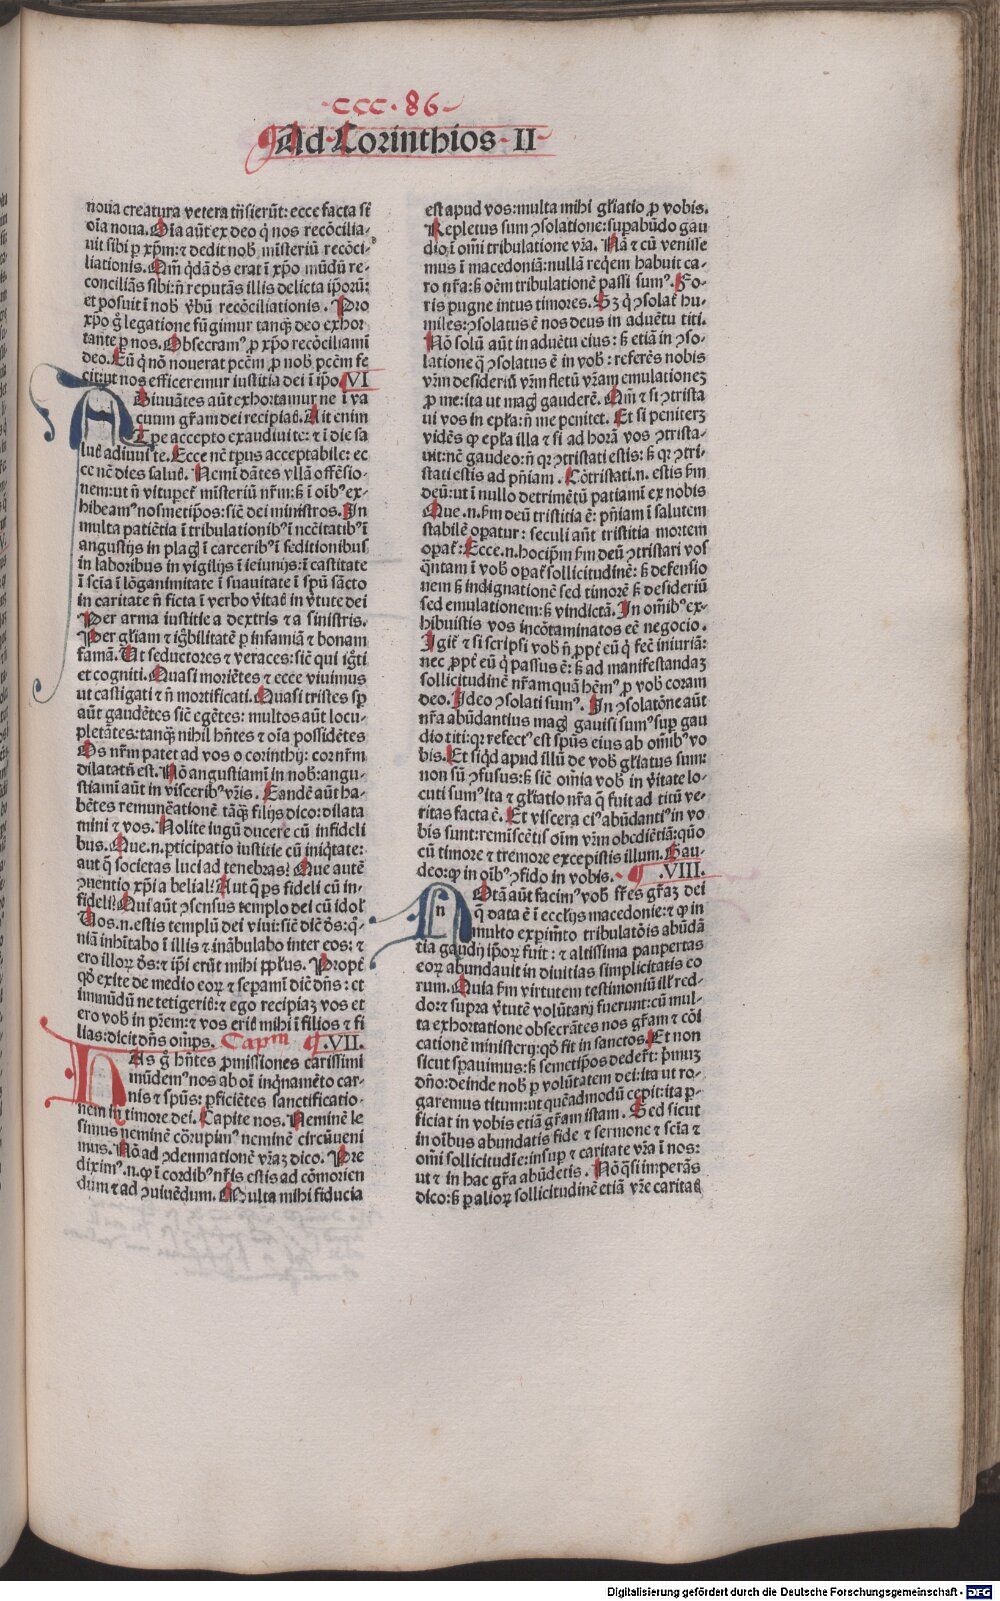 ·ccc·86
Ad Corinthios·II
noua creatura vetera trāsierūt: ecce facta sūt
oīa noua. Oīa aūt ex deo q̄ nos recōcilia-
uit sibi ꝑ xp̄m: ⁊ dedit nob̄ misteriū recōci-
liationis. Qm̄ q̄dā dō̄s erat ī xp̄o mūdū re-
conciliās sibi: n̄ reputās illis delicta ip̄oꝝ:
et posuit ī nob̄ v̄bū recōciliationis. Pro
xp̄o ḡ legatione fūgimur tanqꝫ deo exhor
tante ꝑ nos. Obsecramꝰ ꝓ xp̄o recōciliamī
deo. Eū q̄ nō nouerat pctm̄ ꝓ nob̄ pctm̄ fe
cit: ut nos efficeremur iustitia dei ī ip̄o. VI
ADiuuātes aūt exhortamur ne ī va
cuum gr̄am dei recipiatꝭ. Ait enim
Tp̄e accepto exaudiui te: ⁊ ī die sa
lutꝭ adiuui te. Ecce nc̄ tp̄us acceptabile: ec
ce nc̄ dies salutꝭ. Nemī dātes vllā offēsio-
nem: ut n̄ vitupet̄ misteriū nr̄m: sꝫ ī oībꝰ ex-
hibeamꝰ nosmetip̄os: sic̄ dei ministros. In
multa patiētia ī tribulationibꝰ ī nc̄citatibꝰ ī
angustijs in plagꝭ ī carceribꝰ ī seditionibus
in laboribus in vigilijs ī ieiunijs: ī castitate
ī scīa ī lōganimitate ī suauitate ī spū sācto
in caritate n̄ ficta ī verbo v̄itatꝭ in v̄tute dei
Per arma iustitie a dextris ⁊ a sinistris.
Per gl̄iam ⁊ ignobilitatē ꝑ infamiā ⁊ bonam
famā. Ut seductores ⁊ veraces: sic̄ qui ignoti
et cogniti. Quasi moriētes ⁊ ecce viuimus
ut castigati ⁊ n̄ mortificati. Quasi tristes sp̄
aūt gaudētes sic̄ egētes: multos aūt locu-
pletātes: tanqꝫ nihil hn̄tes ⁊ oīa possidētes
Os nr̄m patet ad vos o corinthij: cor nr̄m
dilatatū est. Nō angustiamī in nob̄: angu-
stiamī aūt in visceribꝰ vr̄is. Eandē aūt ha-
bētes remunēationē tāqꝫ filijs dico: dilata
mini ⁊ vos. Nolite iugū ducere cū infideli
bus. Que.n. ꝑticipatio iustitie cū iniqtate:
aut q̄ societas luci ad tenebras? Que autē
ꝯuentio xp̄i a belial? Aut q̄ ps fideli cū in-
fideli? Qui aūt ꝯsensus templo dei cū idolꝭ
Uos.n. estis templū dei viui: sic̄ dic̄ dō̄s: q̄-
niā inhītabo ī illis ⁊ inābulabo inter eos: ⁊
ero illoꝝ dō̄s: ⁊ ip̄i erūt mihi pp̄lus. Propt̄
qd̄ exite de medio eoꝝ ⁊ sepamī dic̄ dn̄s: et
immūdū ne tetigeritꝭ: ⁊ ego recipiaꝫ vos et
ero vob̄ in pr̄em: ⁊ vos eritꝭ mihi ī filios ⁊ fi
lias: dicit dn̄s om̄ps. Capm̄ .VII.
HAs ḡ hn̄tes ꝓmissiones carissimi
mūdemꝰ nos ab oī inqnamēto car-
nis ⁊ spūs: ꝑficiētes sanctificatio-
nem in timore dei. Capite nos. Neminē le
simus neminē corrupimꝰ neminē circūueni
mus. Nō ad ꝯdemnationē vr̄aꝫ dico. Pre
diximꝰ.n. ꝙ ī cordibꝰ nr̄is estis ad cōmorien
dum ⁊ ad ꝯuiuēdum. Multa mihi fiducia
est apud vos: multa mihi gl̄iatio ꝓ vobis.
Repletus sum ꝯsolatione: supabūdo gau
dio ī omī tribulatione vr̄a. Nā ⁊ cū venisse
mus ī macedoniā: nullā reqem habuit ca-
ro nr̄a: sꝫ oēm tribulationē passi sumꝰ. Fo-
ris pugne intus timores. Sꝫ q̄ ꝯsolat̄ hu-
miles: ꝯsolatus ē nos deus in aduētu titi.
Nō solū aūt in aduētu eius: sꝫ etiā in ꝯso-
latione q̄ ꝯsolatus ē in vob̄: referēs nobis
vr̄m desideriū vr̄m fletū vr̄am emulationeꝫ
ꝓ me: ita ut magꝭ gauderē. Qm̄ ⁊ si ꝯtrista
ui vos in ep̄la: n̄ me penitet. Et si peniteret
vidēs ꝙ ep̄la illa ⁊ si ad horā vos ꝯtrista-
uit: nc̄ gaudeo: n̄ qꝛ ꝯtristati estis: sꝫ qꝛ ꝯtri-
stati estis ad pn̄iam. Cōtristati.n. estis sm̄
deū: ut ī nullo detrimētū patiamī ex nobis
Que.n. sm̄ deū tristitia ē: pn̄iam ī salutem
stabilē oꝑatur: seculi aūt tristitia mortem
oꝑat̄: Ecce.n. hocip̄m sm̄ deū ꝯtristari vos
q̄ntam ī vob̄ oꝑat̄ sollicitudinē: sꝫ defensio
nem sꝫ indignationē sed timorē sꝫ desideriū
sed emulationem: sꝫ vindictā. In om̄ibꝰ ex-
hibuistis vos incōtaminatos eē negocio.
Igit̄ ⁊ si scripsi vob̄ n̄ ꝓpt̄ eū q̄ fec̄ iniuriā:
nec ꝓpt̄ eū q̄ passus ē: sꝫ ad manifestandaꝫ
sollicitudinē nr̄am quā hēmꝰ ꝓ vob̄ coram
deo. Ideo ꝯsolati sumꝰ. In ꝯsolatōne aūt
nr̄a abūdantius magꝭ gauisi sumꝰ sup gau
dio titi: qꝛ refectꝰ est spūs eius ab om̄ibꝰ vo
bis. Et siqd apud illū de vob̄ gl̄iatus sum:
non sū ꝯfusus: sꝫ sic̄ omīa vob̄ in v̄itate lo-
cuti sumꝰ ita ⁊ gl̄iatio nr̄a q̄ fuit ad titū ve-
ritas facta ē. Et viscera eiꝰ abūdantiꝰ in vo
bis sunt: remīscētis oīm vr̄m obediētiā: quō
cū timore ⁊ tremore excepistis illum. Gau-
deo: ꝙ in oībꝰ ꝯfido in vobis. .VIII.
NOtā aūt facimꝰ vob̄ fr̄es gr̄aꝫ dei
q̄ data ē ī eccl̄ijs macedonie: ⁊ ꝙ in
multo exꝑimēto tribulatōis abūdā
tia gaudij ip̄oꝝ fuit: ⁊ altissima paupertas
eoꝝ abundauit in diuitias simplicitatis eo
rum. Quia sm̄ virtutem testimoniū ill̄ red-
do: ⁊ supra v̄tutē volūtarij fuerunt: cū mul-
ta exhortatione obsecrātes nos gr̄am ⁊ cōī
cationē ministerij: qd̄ fit in sanctos. Et non
sicut sꝑauimus: sꝫ semetip̄os deder̄t: p̄muꝫ
dn̄o: deinde nob̄ ꝑ volūtatem dei: ita ut ro-
garemus titum: ut quēadmodū cepit: ita ꝑ-
ficiat in vobis etiā gr̄am istam. Sed sicut
in oībus abundatis fide ⁊ sermone ⁊ scīa ⁊
omī sollicitudīe: insup ⁊ caritate vr̄a ī nos:
ut ⁊ in hac gr̄a abūdetis. Nō qsi imperās
dico: sꝫ ꝑ alioꝝ sollicitudinē etiā vr̄e caritatꝭ
Digitalisierung gefördert durch die Deutsche Forschungsgemeinschaft - DFG